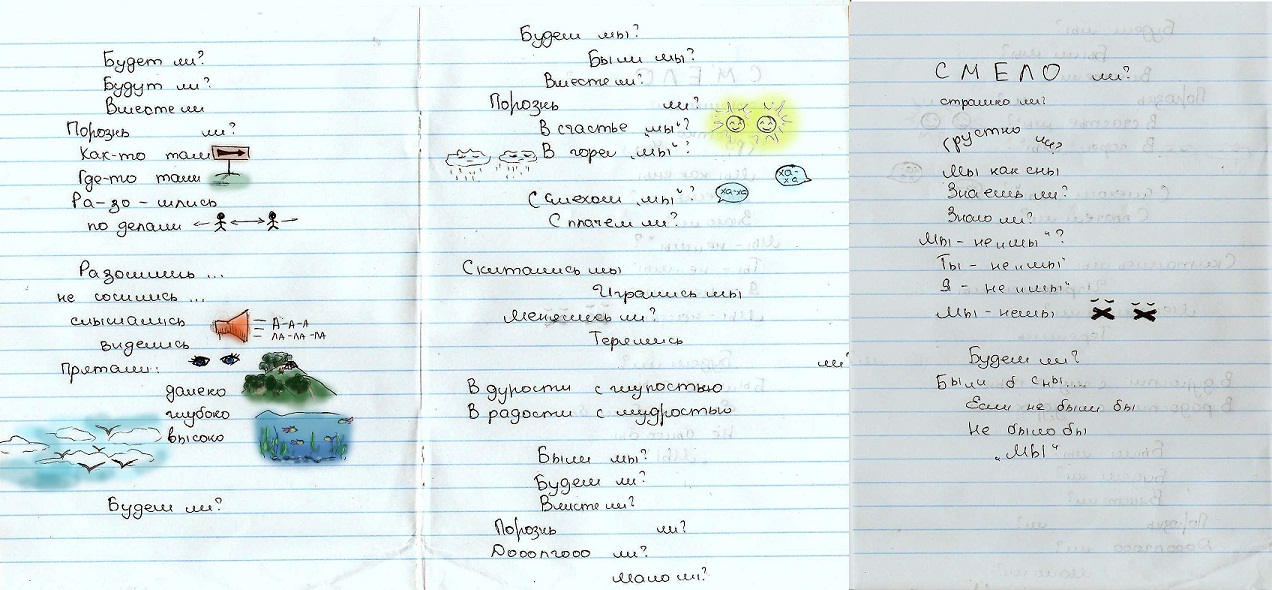 Будет ли?
Будут ли?
Вместе ли
Порознь ли?
Как-то там
Где-то там
Ра-зо-шлись
по делам
Разошлись ...
не сошлись ...
слышались
А-А-А
ЛА-ЛА-ЛА
виделись
Прятали:
далеко
глубоко
высоко
Будем ли?
Будем мы?
Были мы?
Вместе ли?
Порознь ли?
В счастье „мы"?
В горе „мы"?
ха-ха
С смехом „мы"?
ха-ха
С плачем ли?
Скитались мы
Игрались мы
ли?
Терялись
ли?
В дурости с глупостью
В радости с мудростью
Были мы?
Будем мы?
Вместе ли?
Порознь ли?
Dооолгооо ли?
Мало ли?
СМЕЛО ли?
страшно ли?
грустно ли?
Мы как сны
Знаешь ли?
Знаю ли?
Мы - не „мы"?
Ты - не „мы"
Я - не „мы"
Мы - немы
Будем ли?
Были б сны...
Если не были бы
Не было бы
„МЫ"